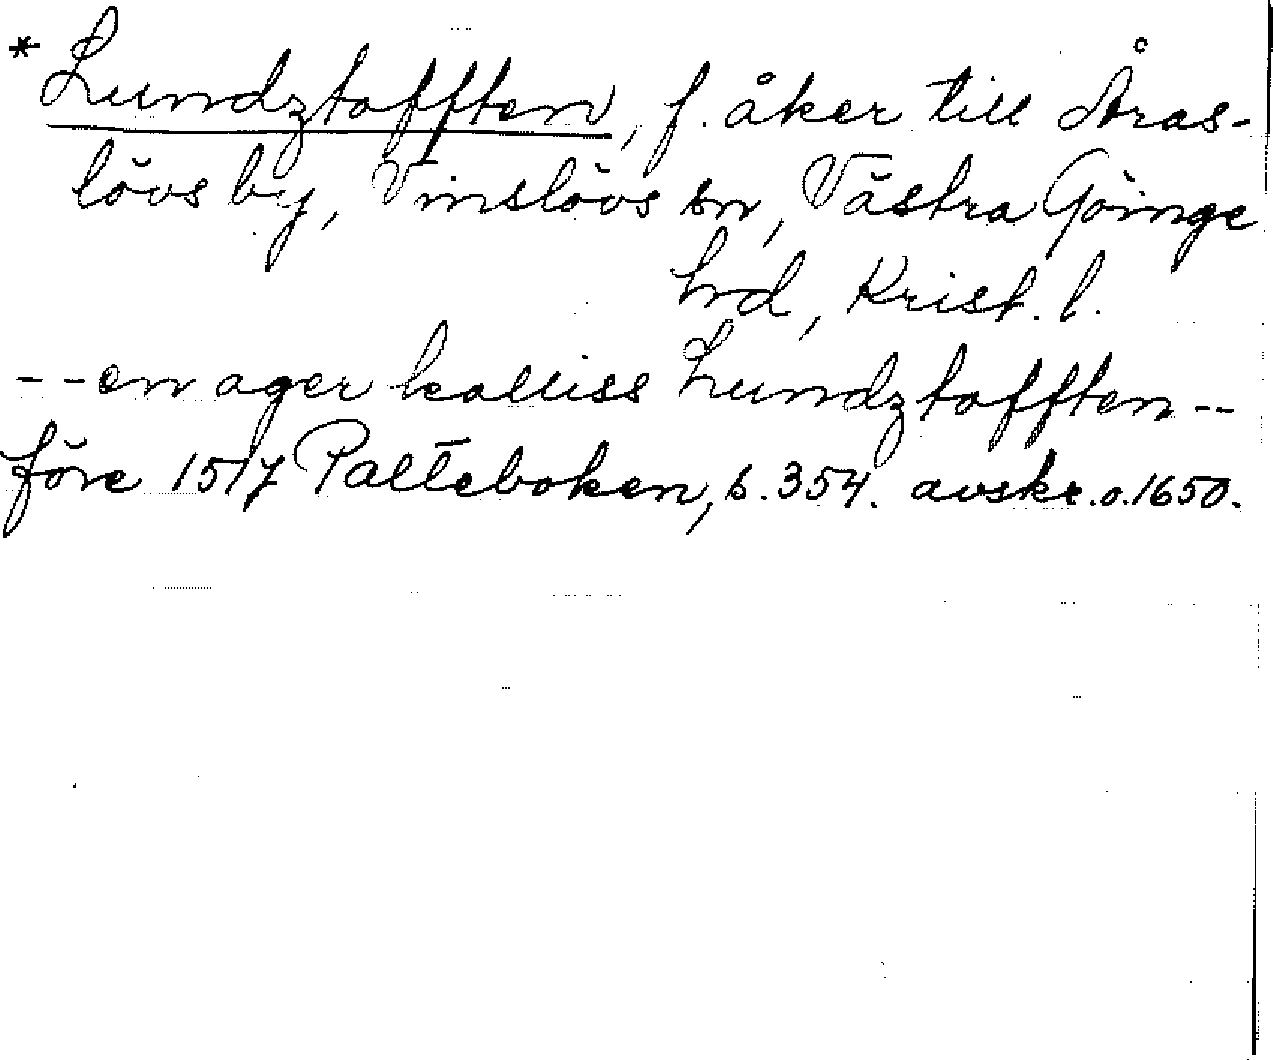 *Lundztofften, f. åker till Åras-
lövs by, Vinslövs sn, Västra Göinge
hrd, Krist. l.
--en ager kalliss Lundztofften--
före 1517 Palteboken, s. 354. avskr. o. 1650.